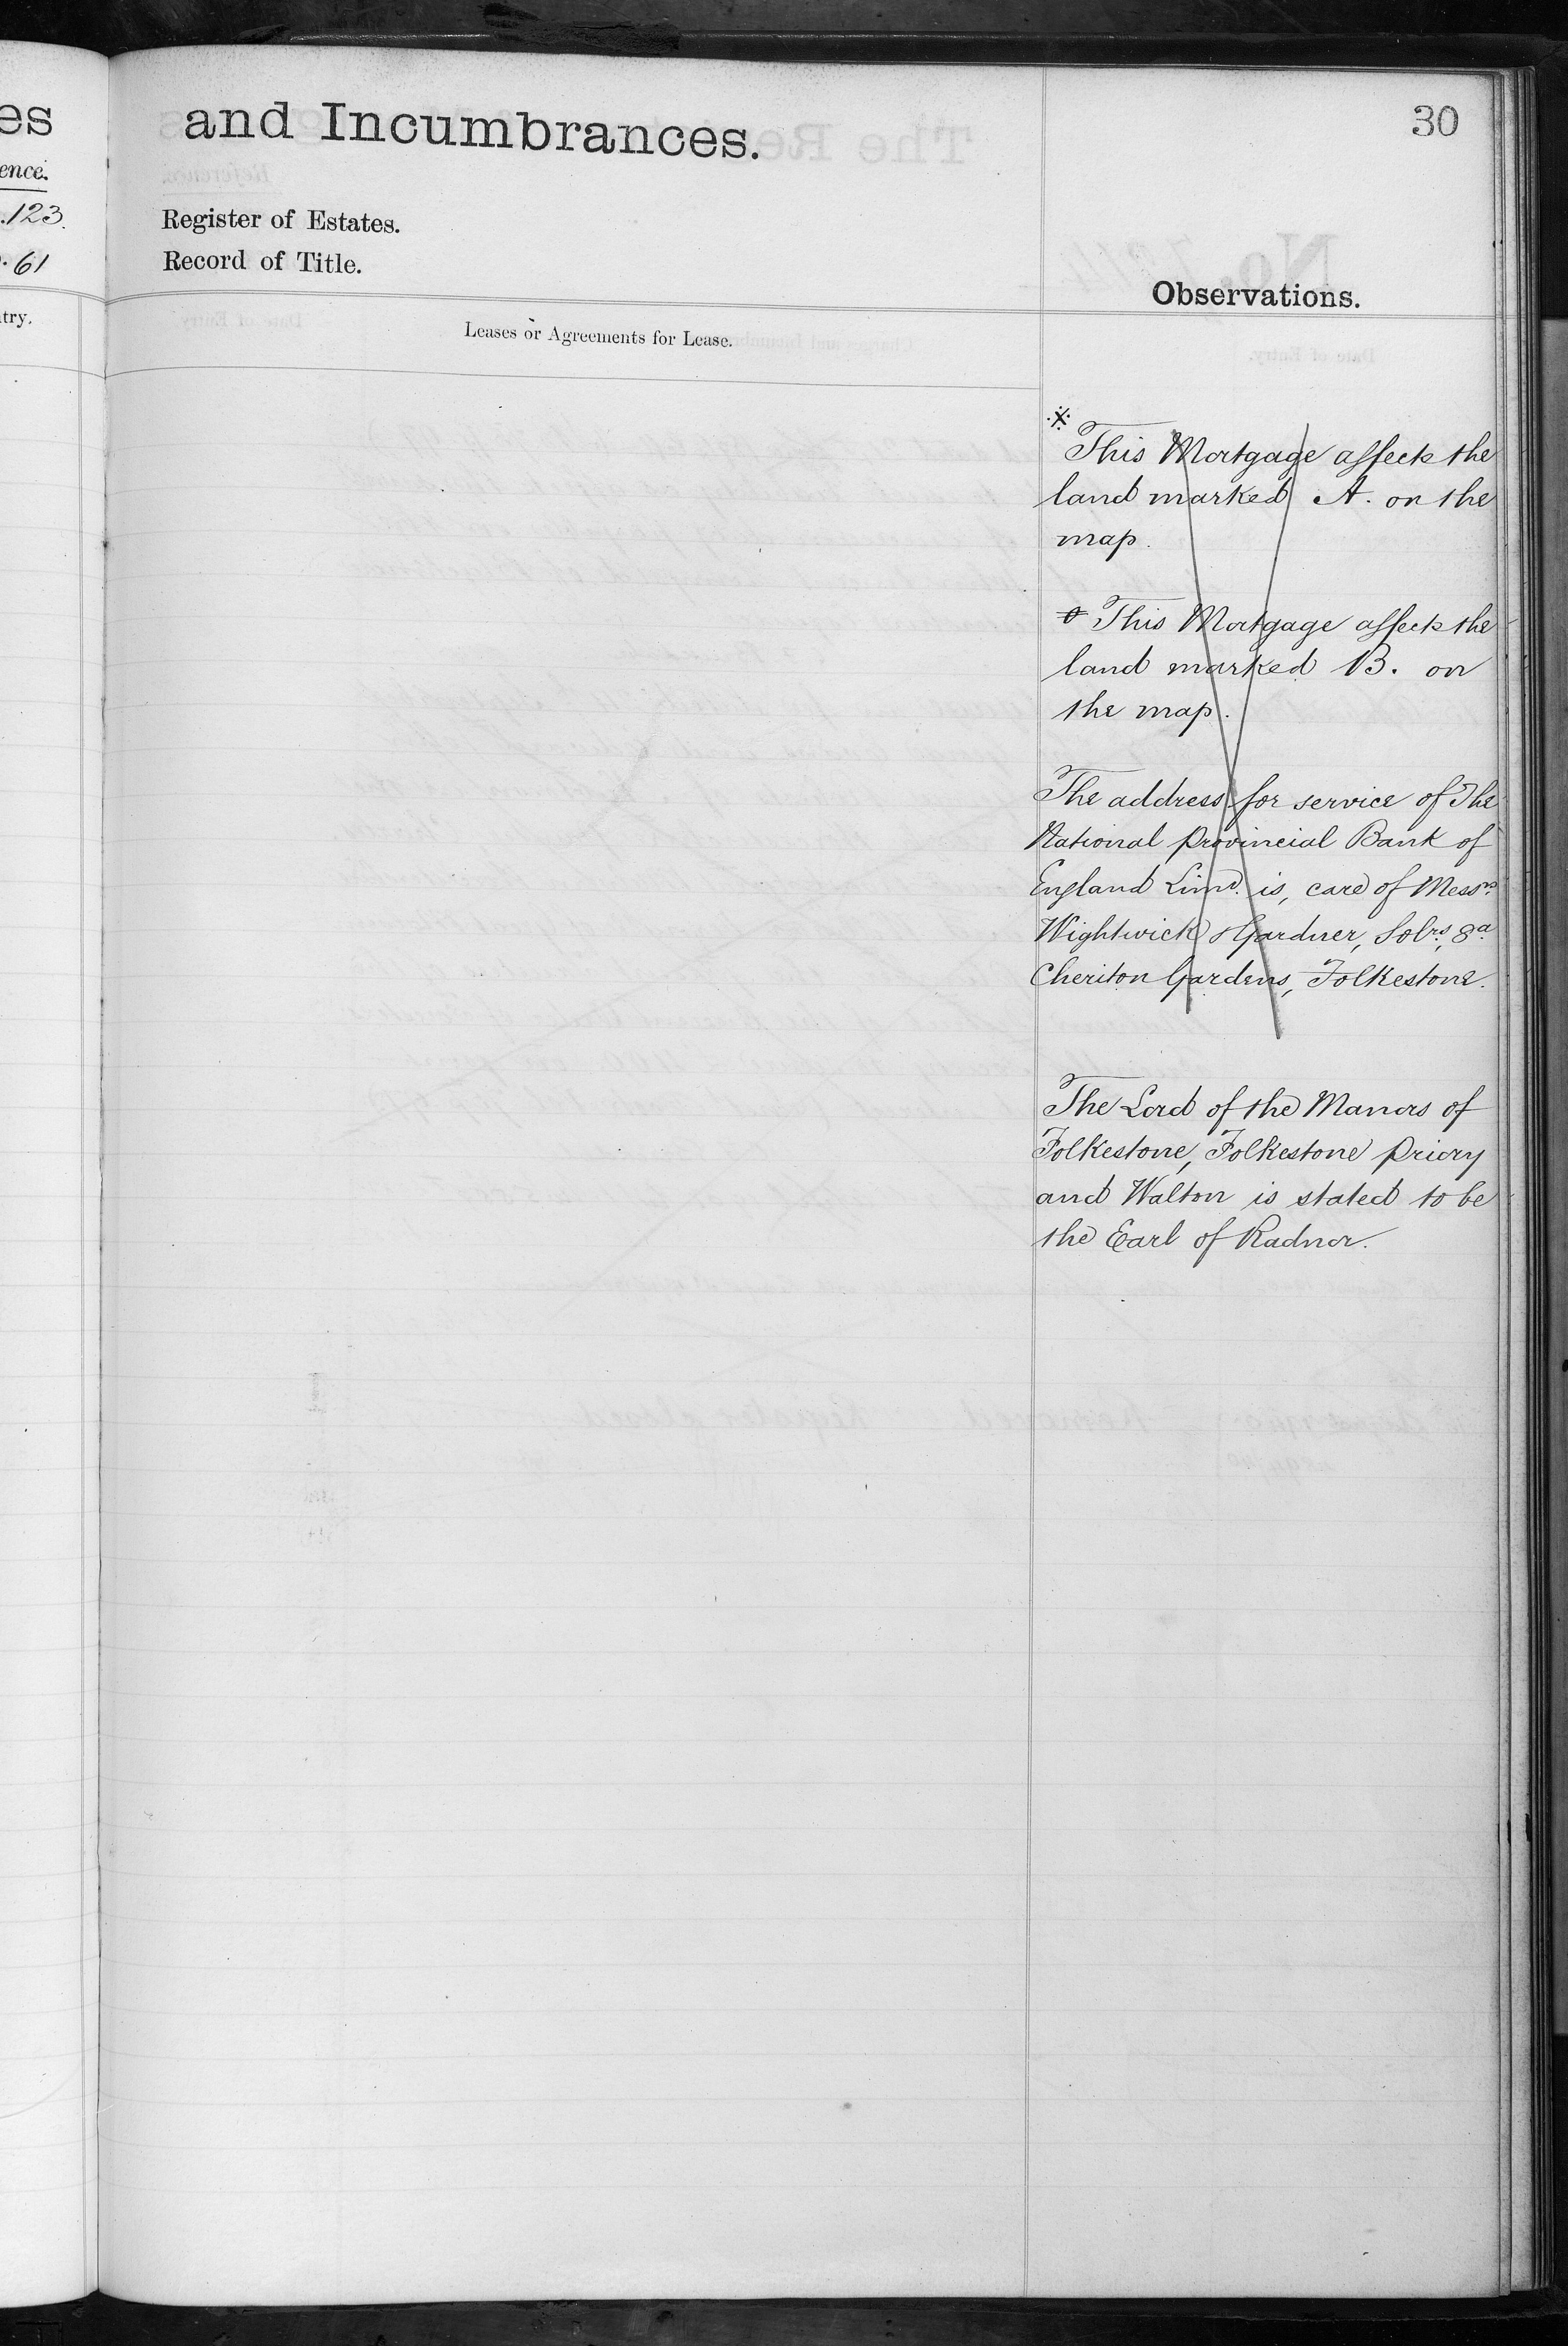 es
ence.
.123.
.61
try.
and Incumbrances.
30
Register of Estates.
Record of Title.
Observations.
Leases or Agreements for Lease.
This Mortgage affects the
land marked A. on the
map.
This Mortgage affects the
land marked B. on
the map.
The address for service of The
National Provincial Bank of
England Limd. is, care of Messrs.
Wightwick & Gardner, Solrs, 8a
Cheriton Gardens, Folkestone.
The Lord of the Manors of
Folkestone, Folkestone Priory
and Walton is stated to be
the Earl of Radnor.